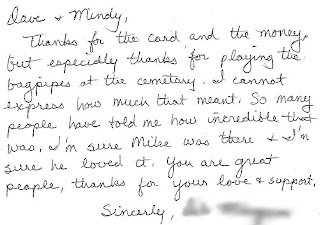 Dave & Mindy,
Thanks for the card and the money,
but especially thanks for playing the
bagpipes at the cemetary. I cannot
express how much that meant. So many
people have told me how incredible that
was. I'm sure Mike was there & I'm
sure he loved it. You are great
people, thanks for your love & support.
Sincerly,